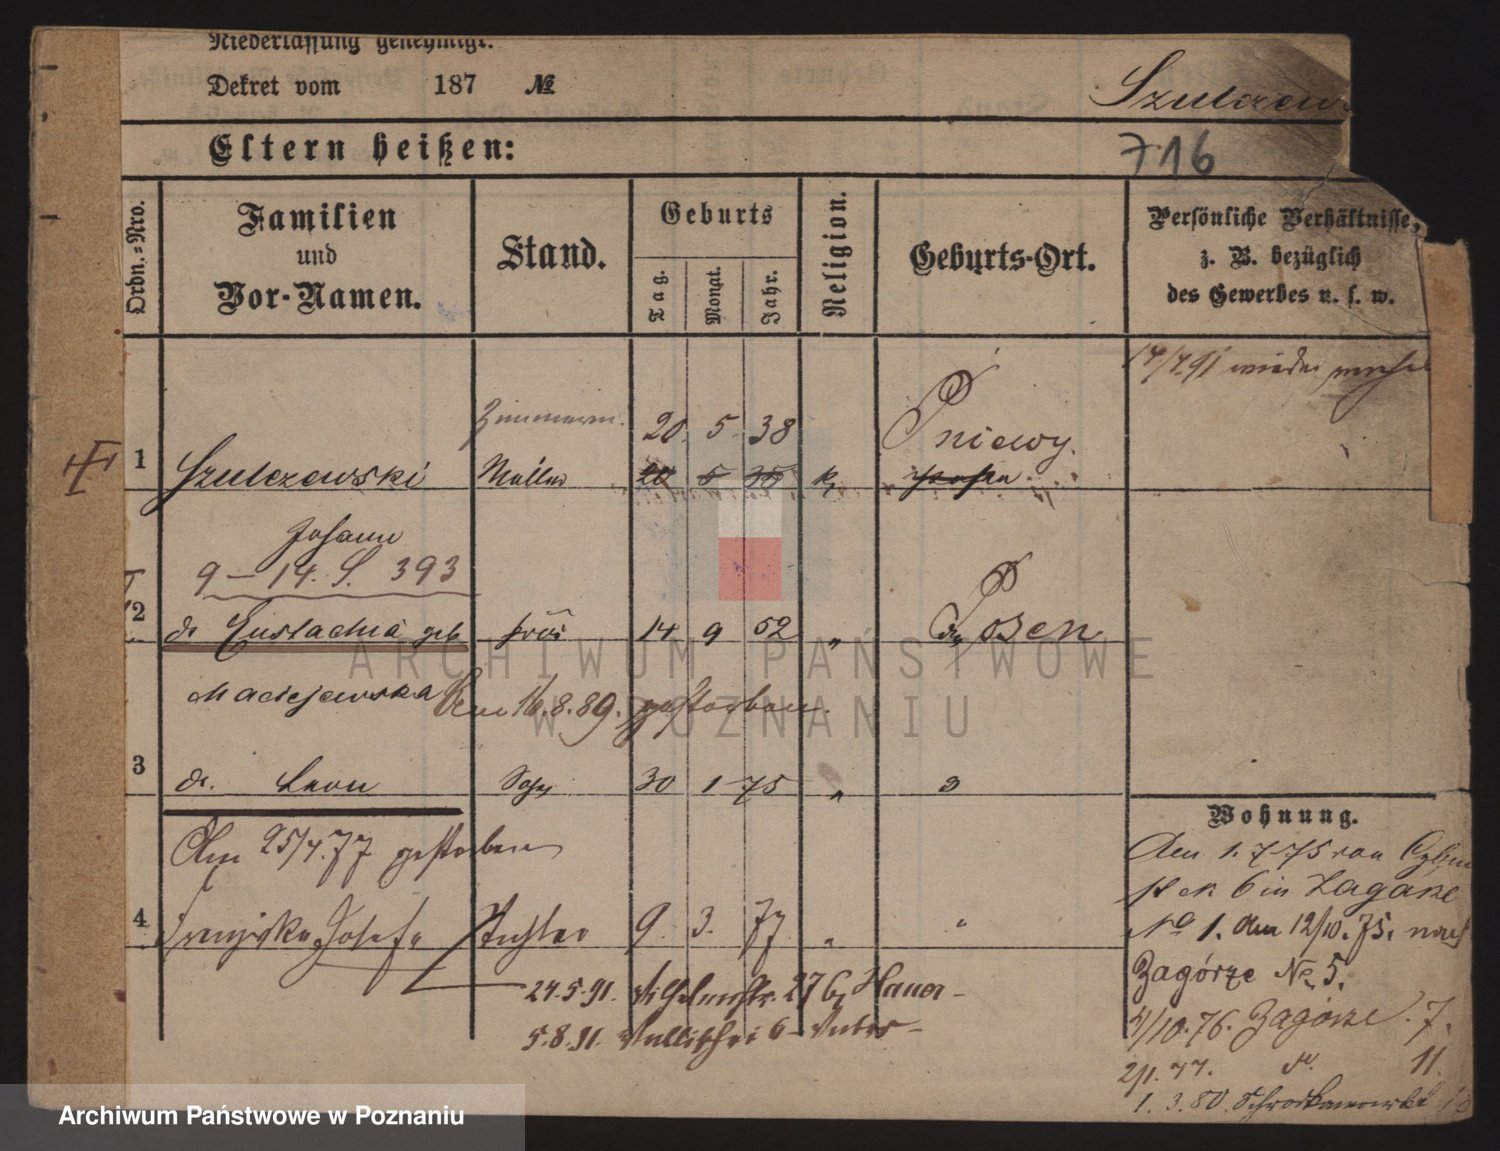 Niederlassung genehmigt.
Dekret vom 187 №
Szulczew
Eltern heißen:
716
Ordn.-Nro.
Familien und Vor-Namen.
Stand.
Geburts
Tag.
Monat.
Jahr.
Religion.
Geburts-Ort.
Persönliche Verhältnisse,
z. B. bezüglich
des Gewerbes u. s. w.
17/7.91 wieder
Zimmerm. 20. 5. 38 Pniewy.
1 Szulczewski Müller 20 5 38 k, Posen
Johann
9 – 14. S. 393
2 do Eustachia geb Frau 14 9 52 " Posen
Maciejewska Am 16.8.89. gestorben.
3 do. Leon Sohn 30 1 75 "
Am 25/4.77 gestorben
4 Josefa Tochter 9. 3. 77 " "
24.5.91. 27 b, Hauer
5.8.91. Wallischei 6
Wohnung.
Den 1.7.75 von
6 in Zagorze
No 1. den 12/10.75. nach
Zagórze No 5.
4/10.76. Zagórze 7.
2/1.77. do. 11.
1.3.80.
ARCHIWUM PAŃSTWOWE
W POZNANIU
Archiwum Państwowe w Poznaniu